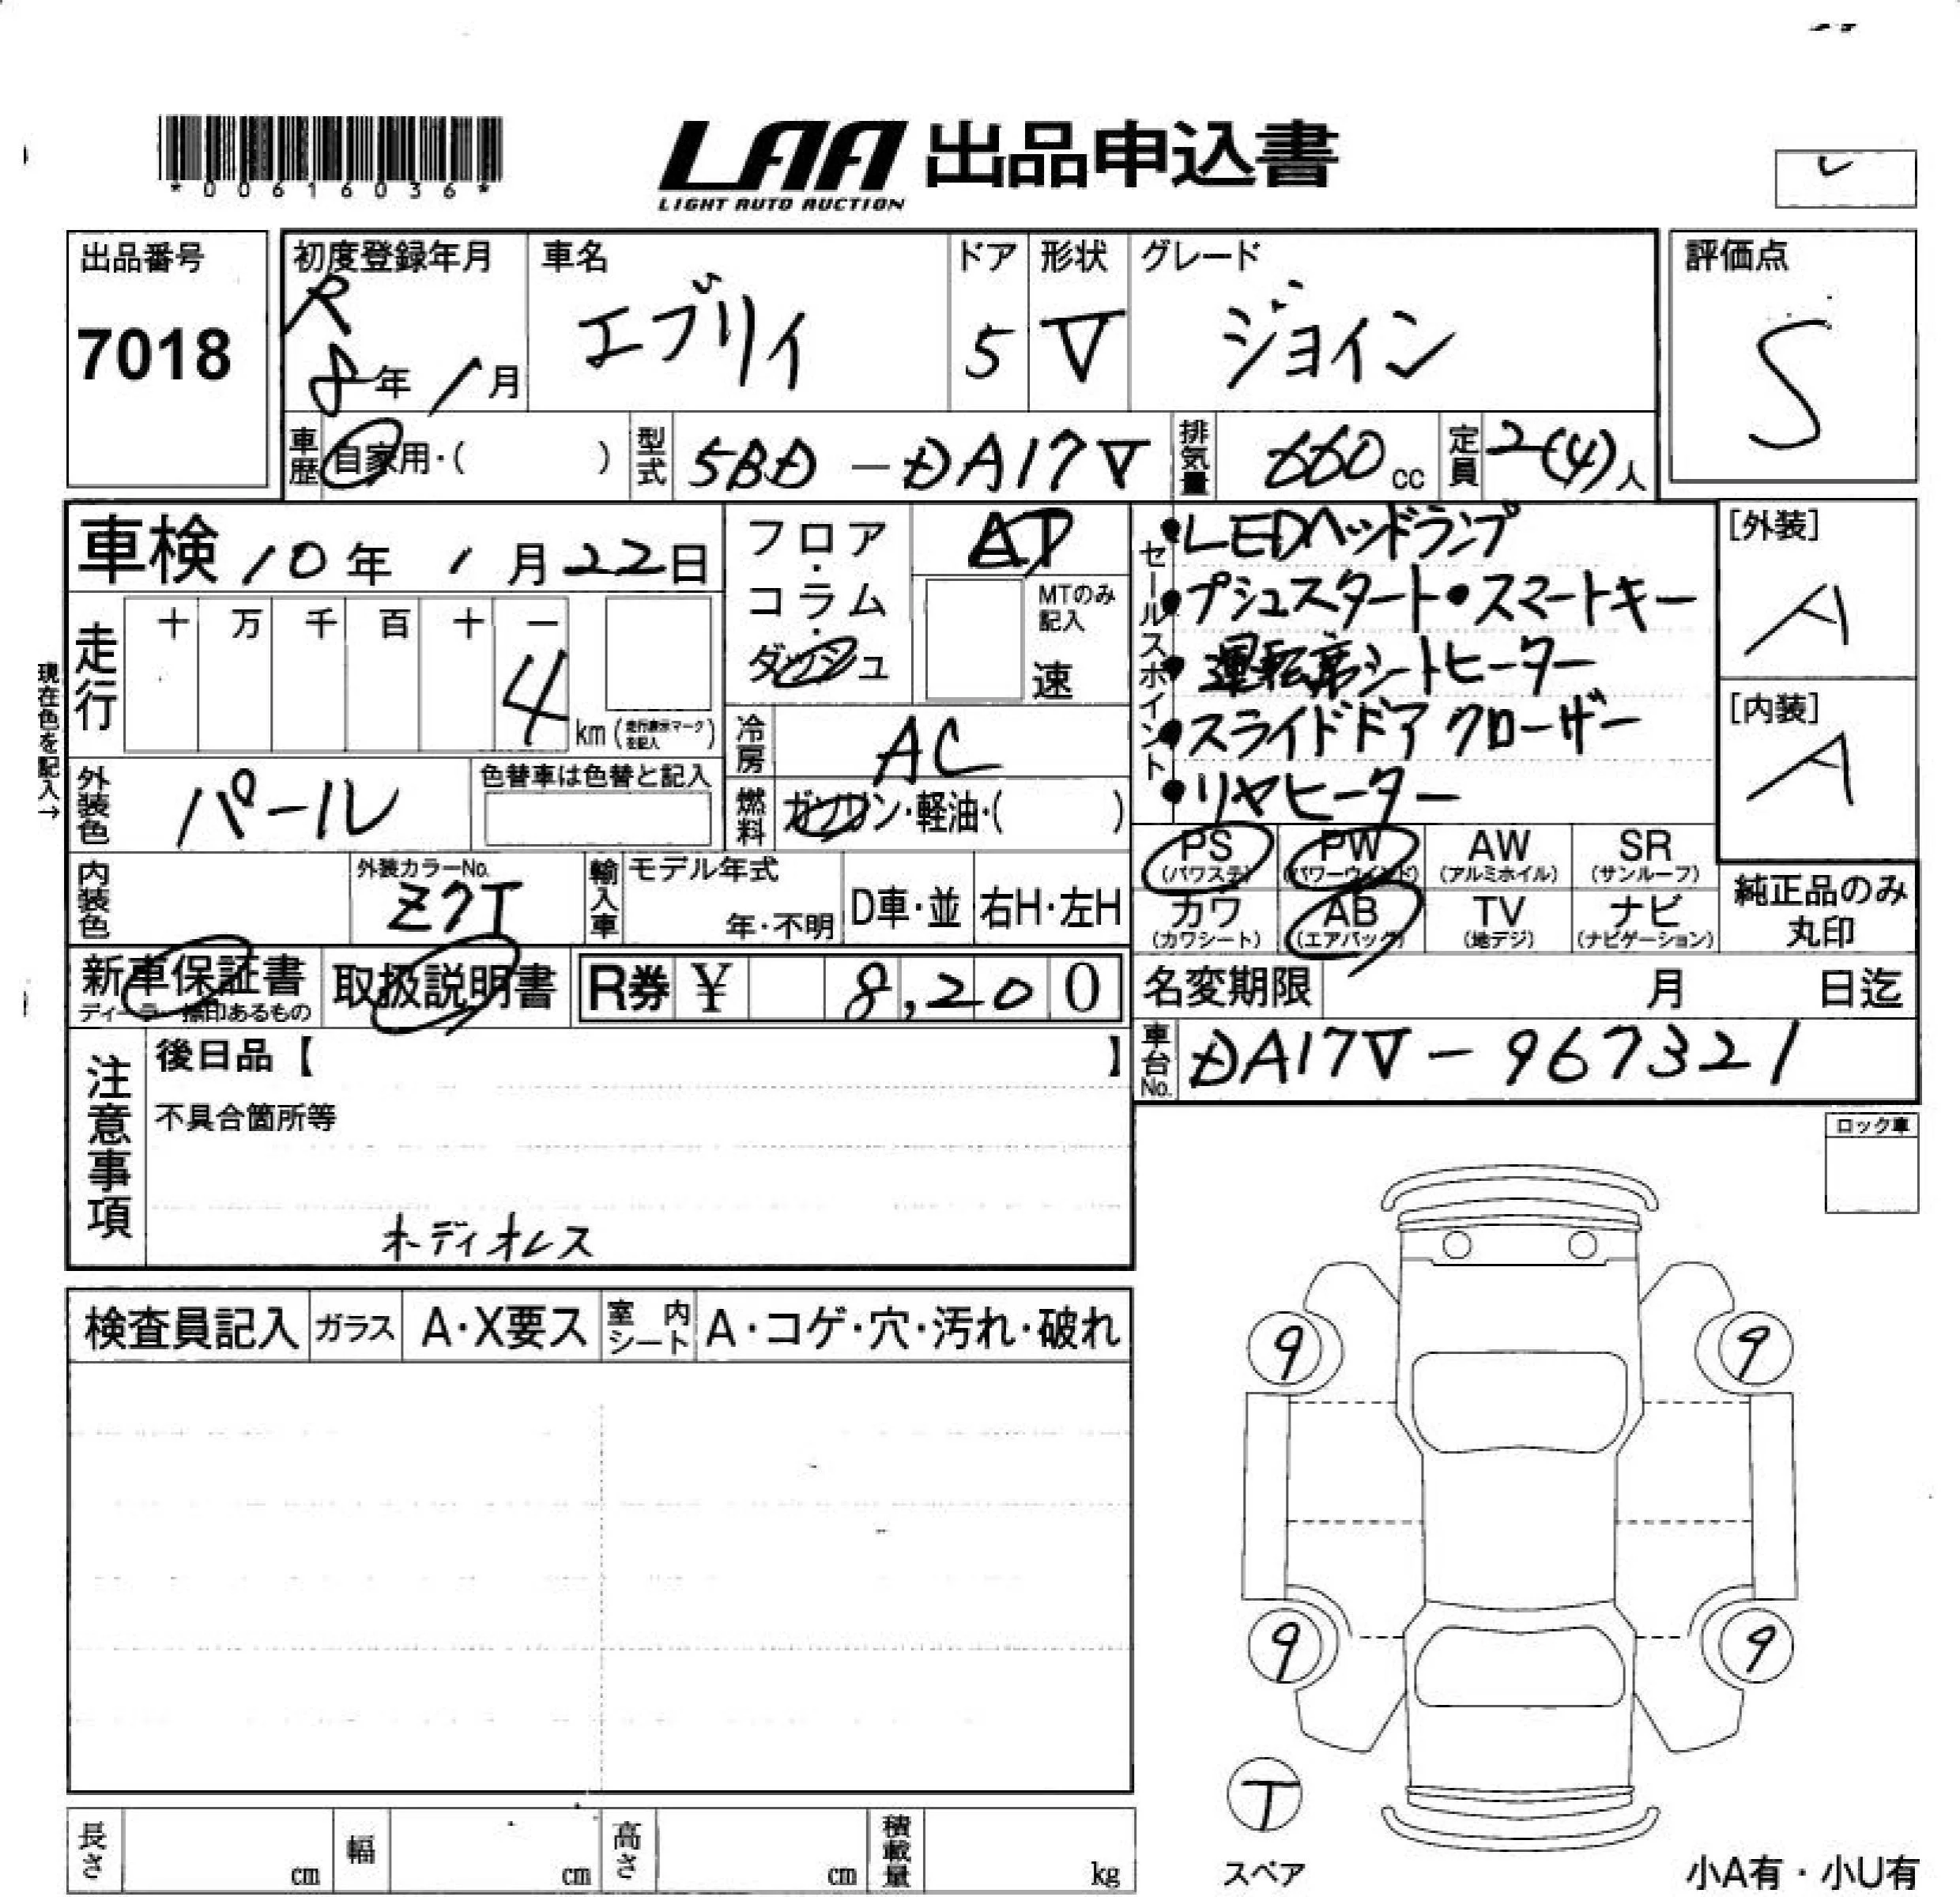 *00616036*
LAA 出品申込書
LIGHT AUTO AUCTION
出品番号
7018
初度登録年月
R
8年 1月
車名
エブリイ
ドア
5
形状
V
グレード
ジョイン
評価点
S
車歴
自家用・( )
型式
5BD-DA17V
排気量
660cc
定員
2(4)人
車検 10年 1月22日
フロア・コラム・ダッシュ
AT
MTのみ記入
速
走行
十 万 千 百 十 一
4
km(走行表示マークを記入)
現在色を記入→
冷房
AC
外装色
パール
色替車は色替と記入
燃料
ガソリン・軽油・( )
セールスポイント
●LEDヘッドランプ
●プシュスタート●スマートキー
●運転席シートヒーター
●スライドドアクローザー
●リヤヒーター
[外装]
A
[内装]
A
内装色
外装カラーNo.
Z7T
輸入車
モデル年式
年・不明
D車・並
右H・左H
PS
(パワステ)
PW
(パワーウインド)
AW
(アルミホイル)
SR
(サンルーフ)
カワ
(カワシート)
AB
(エアバッグ)
TV
(地デジ)
ナビ
(ナビゲーション)
純正品のみ
丸印
新車保証書
ディーラー捺印あるもの
取扱説明書
R券 ¥ 8,200
名変期限 月 日迄
車台No.
DA17V-967321
注意事項
後日品【 】
不具合箇所等
オーディオレス
ロック車
検査員記入
ガラス
A・X要ス
室内シート
A・コゲ・穴・汚れ・破れ
9
9
9
9
T
スペア
長さ cm
幅 cm
高さ cm
積載量 kg
小A有・小U有